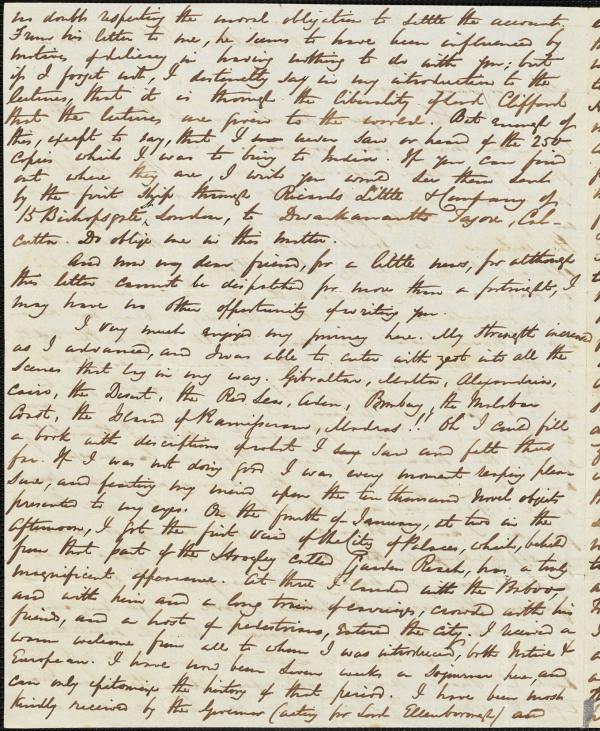 no doubts respecting the moral obligation to settle the account.
From his letter to me, he seems to have been influenced by
motives of delicacy in having nothing to do with you; but
if I forget not, I distinctly say in my introduction to the
lectures, that it is through the liberality of Lord Clifford
that the lectures are given to the world. But enough of
this, except to say, that I never saw or heard of the 250
copies which I was to bring to India. If you can find
out where they are, I wish you would see them sent
by the first ship through Rickards Little & Company of
15 Bishopsgate St, London, to Dwarkanauth Tagore, Cal-
cutta. Do oblige me in this matter.
And now my dear friend, for a little news, for although
this letter cannot be despatched for more than a fortnight, I
may have no other opportunity of writing you.
I very much enjoyed my journey here. My strength increased
as I advanced, and I was able to enter with zest into all the
scenes that lay in my way. Gibraltar, Malta, Alexandria,
Cairo, the Desert, the Red Sea, Aden, Bombay, the Malabar
Coast, the Island of Ramisseram, Madras!! Oh I could fill
a book with descriptions of what I saw and felt thus
far. If I was not doing good I was every moment reaping plea-
sure, and feasting my mind upon the ten thousand novel objects
presented to my eyes. On the fourth of January, at two in the
afternoon, I got the first view of the City of Palaces, which, beheld
from that part of the Hooghly called Garden Reach, has a truly
magnificent appearance. At three I landed with the Baboo,
and with him and a long train of carriages, crowded with his
friends, and a host of pedestrians, entered the city. I received a
warm welcome from all to whom I was introduced, both Native &
European. I have now been seven weeks a sojourner here, and
can only epitomize the history of that period. I have been most
kindly received by the Governor (acting for Lord Ellenborough) and